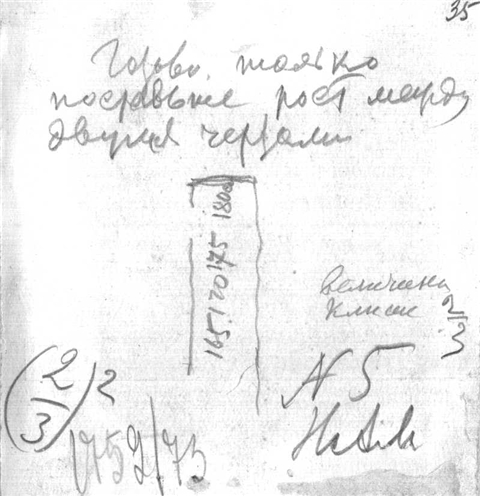 35
Готово, только
поставьте рост между
двумя чертами
165 170 175 180
величина
клише
(2/3)²
1759/73
N 5